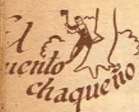 El
uento
chaqueño